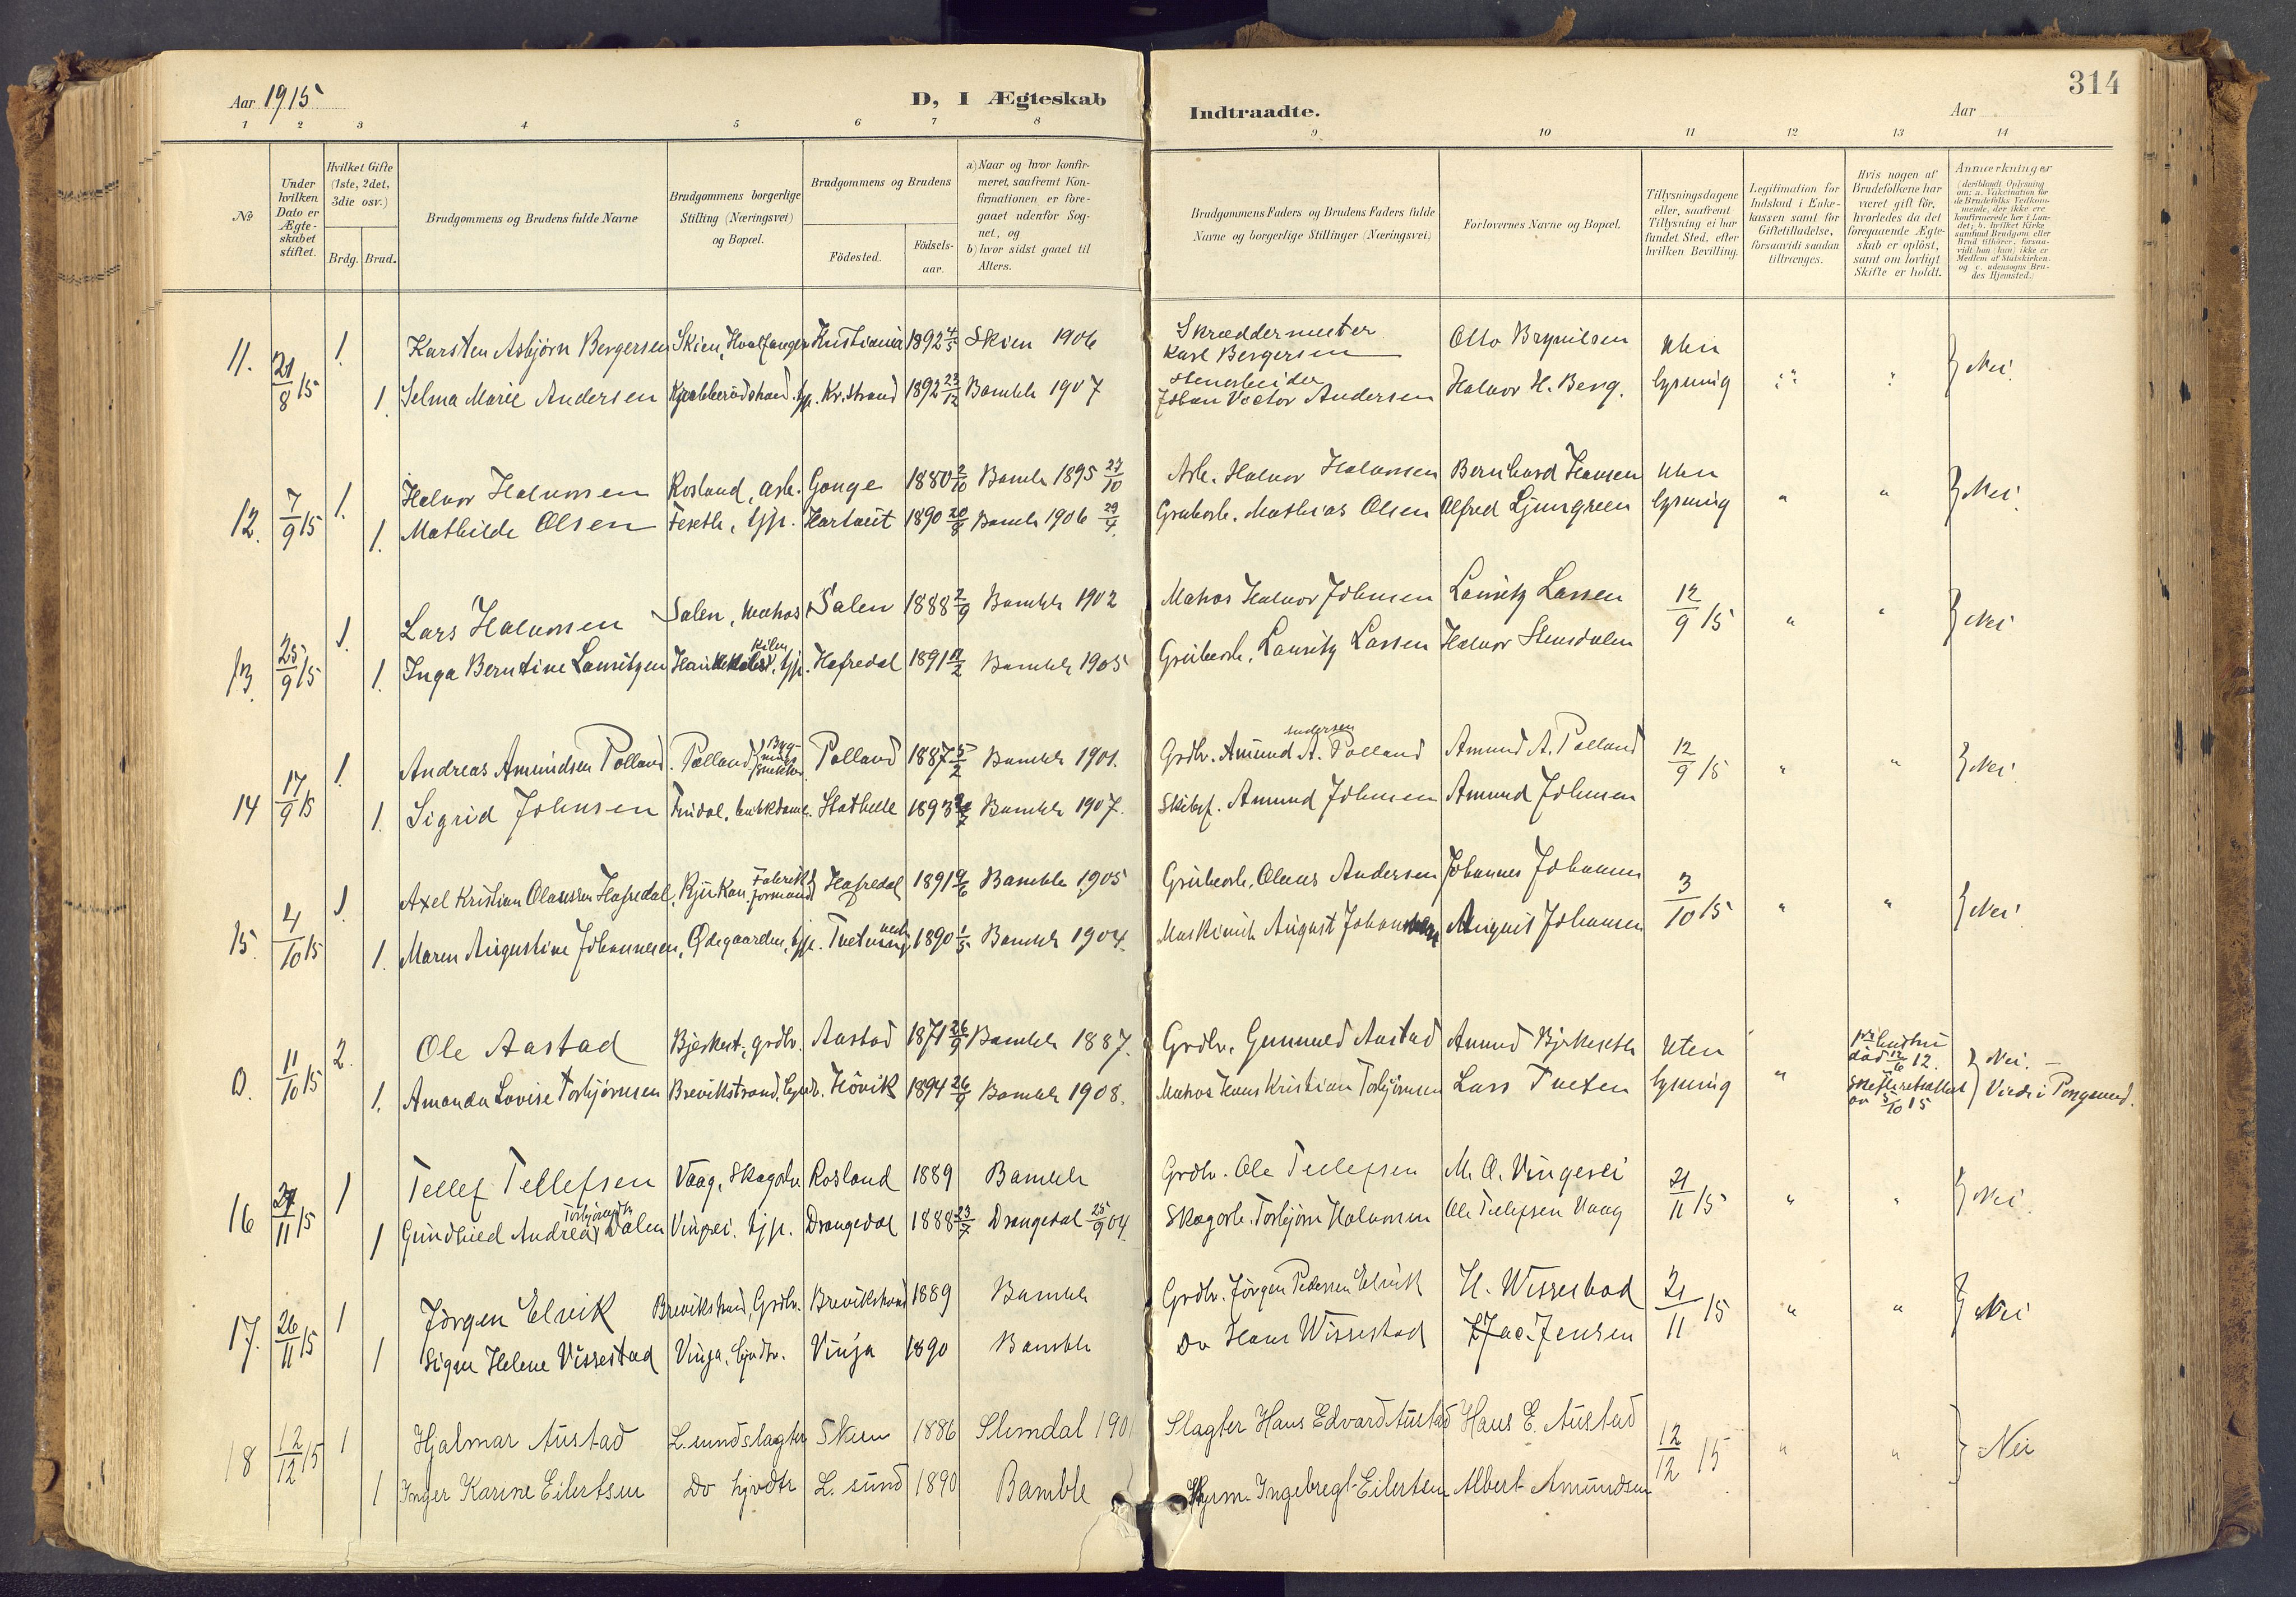 Aar 1915
D, I Ægteskab
Indtraadte.
314
Aar
1 2 3 4 5 6 7 8 9 10 11 12 13 14
No
Under
hvilken
Dato er
Ægte-
skabet
stiftet.
Hvilket Gifte
(1ste, 2det,
3die osv.)
Brdg. Brud.
Brudgommens og Brudens fulde Navne
Brudgommens borgerlige
Stilling (Næringsvei)
og Bopæl.
Brudgommens og Brudens
Fødested.
Fødsels-
aar.
a) Naar og hvor konfir-
meret, saafremt Kon-
firmationen er fore-
gaaet udenfor Sog-
net, og
b) hvor sidst gaaet til
Alters.
Brudgommens Faders og Brudens Faders fulde
Navne og borgerlige Stillinger (Næringsvei)
Forlovernes Navne og Bopæl.
Tillysningsdagene
eller, saafremt
Tillysning ei har
fundet Sted, efter
hvilken Bevilling.
Legitimation for
Indskud i Enke-
kassen samt for
Giftetilladelse,
forsaavidt saadan
tiltrænges.
Hvis nogen af
Brudefolkene har
været gift før,
hvorledes da det
foregaaende Ægte-
skab er opløst,
samt om lovligt
Skifte er holdt.
Anmerkninger
(deriblandt Oplysning
om: a. Vakcination for
de Brudefolks Vedkom-
mende, der ikke ere
konfirmerede her i Lan-
det; b. hvilket Kirke-
samfund Brudgom eller
Brud tilhører, forsaa-
vidt han (hun) ikke er
Medlem af Statskirken.
og c. udensogns Bru-
des Hjemsted.)
11. 21/8 15 1. Karsten Asbjørn Bergersen Skien, Hvalfanger Kristiania 1892 4/5 Skien 1906 Skræddermester Karl Bergersen Otto Brynilsen Uten
1. Selma Marie Andersen tjp. Kr. strand 1892 23/12 Bamble 1907 Stenarbeider Johan Victor Andersen Halvor H. Berg. lysning " " } Nei.
12. 7/9 15 1. Halvor Halvorsen Rosland, arb. Gonge 1880 2/10 Bamble 1895 27/10 Arb. Halvor Halvorsen Bernhard Hansen Uten
1. Mathilde Olsen Feseth, tjp. 1890 20/8 Bamble 1906 29/4. Grubearb. Mathias Olsen Alfred Ljungreen lysning " " } Nei.
13. 25/9 15 1. Lars Halvorsen Salen, matros Salen 1888 2/9 Bamble 1902 Matros Halvor Johnsen Lauritz Larsen 12/9 15 " " } Nei
1. Inga Berntine Lauritzen Kilen, tjp. Hafredal 1891 11/2 Bamble 1905 Grubearb. Lauritz Larsen Halvor Stensdalen
14 17/9 15 1. Andreas Amundsen Tolland. Tolland Tolland 1887 5/2 Bamble 1901. Grdbr. Amund Andersen A. Tolland Amund A. Tolland 12/9 15 " " } Nei.
1. Sigrid Johnsen butikdame. Stathelle 1893 Bamble 1907. Skibsf. Amund Johnsen Amund Johnsen
15. 4/10 15 1. Axel Kristian Olaussen Hafredal, Rjukan. Fabriks formand Hafredal 1891 9/6 Bamble 1905 Grubearb. Olaus Andersen Johannes Johansen 3/10 15 " " } Nei.
1. Maren Augustine Johannesen, Ødegaarden, tjp. 1890 1/5 Bamble 1904. Maskinist August Johannesen August Johansen
D. 11/10 15 2. Ole Aastad grdbr. Aastad 1871 26/9 Bamble 1887. Grdbr. Gunuld Aastad Amund Bjerkeseth Uten " 1ste hustru død 12/6 12. } Nei. —
1. Amanda Lovise Torbjørnsen Brevikstrand Høvik 1894 26/9 Bamble 1908. Matros Hans Kristian Torbjørnsen Lars Tveten lysning " Skifteretsattest av 5/10 15 Viede i Porsgrund.
16 27/11 15 1 Tellef Tellefsen Vaag, Skogarb. Rosland 1889 Bamble Grdbr. Ole Tellefsen M. O. Vingerei 21/11 15 " " } Nei.
1 Gundhild Andrea Torbjørnsdtr Dalen tjp. Drangedal 1888 23/7 Drangedal 25/9 04. Skogarb. Torbjørn Halvorsen Ole Tellefsen Vaag
17. 26/11 15 1 Jørgen Elvik Brevikstrand, Grdbr. Brevikstrand 1889 Bamble Grdbr. Jørgen Pedersen Elvik H. Wissestad 21/11 15 " " } Nei
1 Signe Helene Vissestad Vinja, Vinja 1890 Bamble Do Hans Wissestad Jac. Jensen
18 12/12 15 1 Hjalmar Austad L.sund slagter Skien 1886 Slemdal 1901 Slagter Hans Edvard Austad Hans E. Austad 12/12 15 " " } Nei
1 Inger Karine Eilertsen Do L. sund 1890 Bamble Ingebregt Eilertsen Albert Amundsen